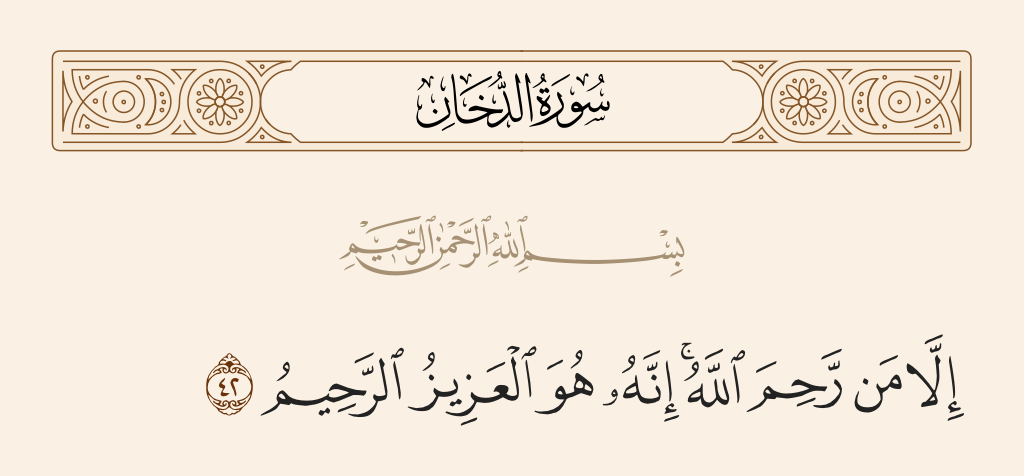 سُورَةُ الدُّخَانِ
بِسْمِ ٱللَّهِ ٱلرَّحْمَٰنِ ٱلرَّحِيمِ
إِلَّا مَن رَّحِمَ ٱللَّهُ ۚ إِنَّهُۥ هُوَ ٱلْعَزِيزُ ٱلرَّحِيمُ ٤٢